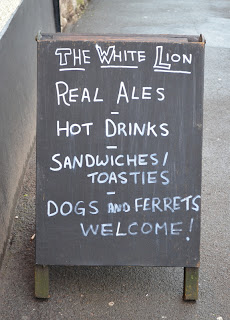 THE WHITE LION
REAL ALES
-
HOT DRINKS
-
SANDWICHES/
TOASTIES
-
DOGS AND FERRETS
WELCOME!